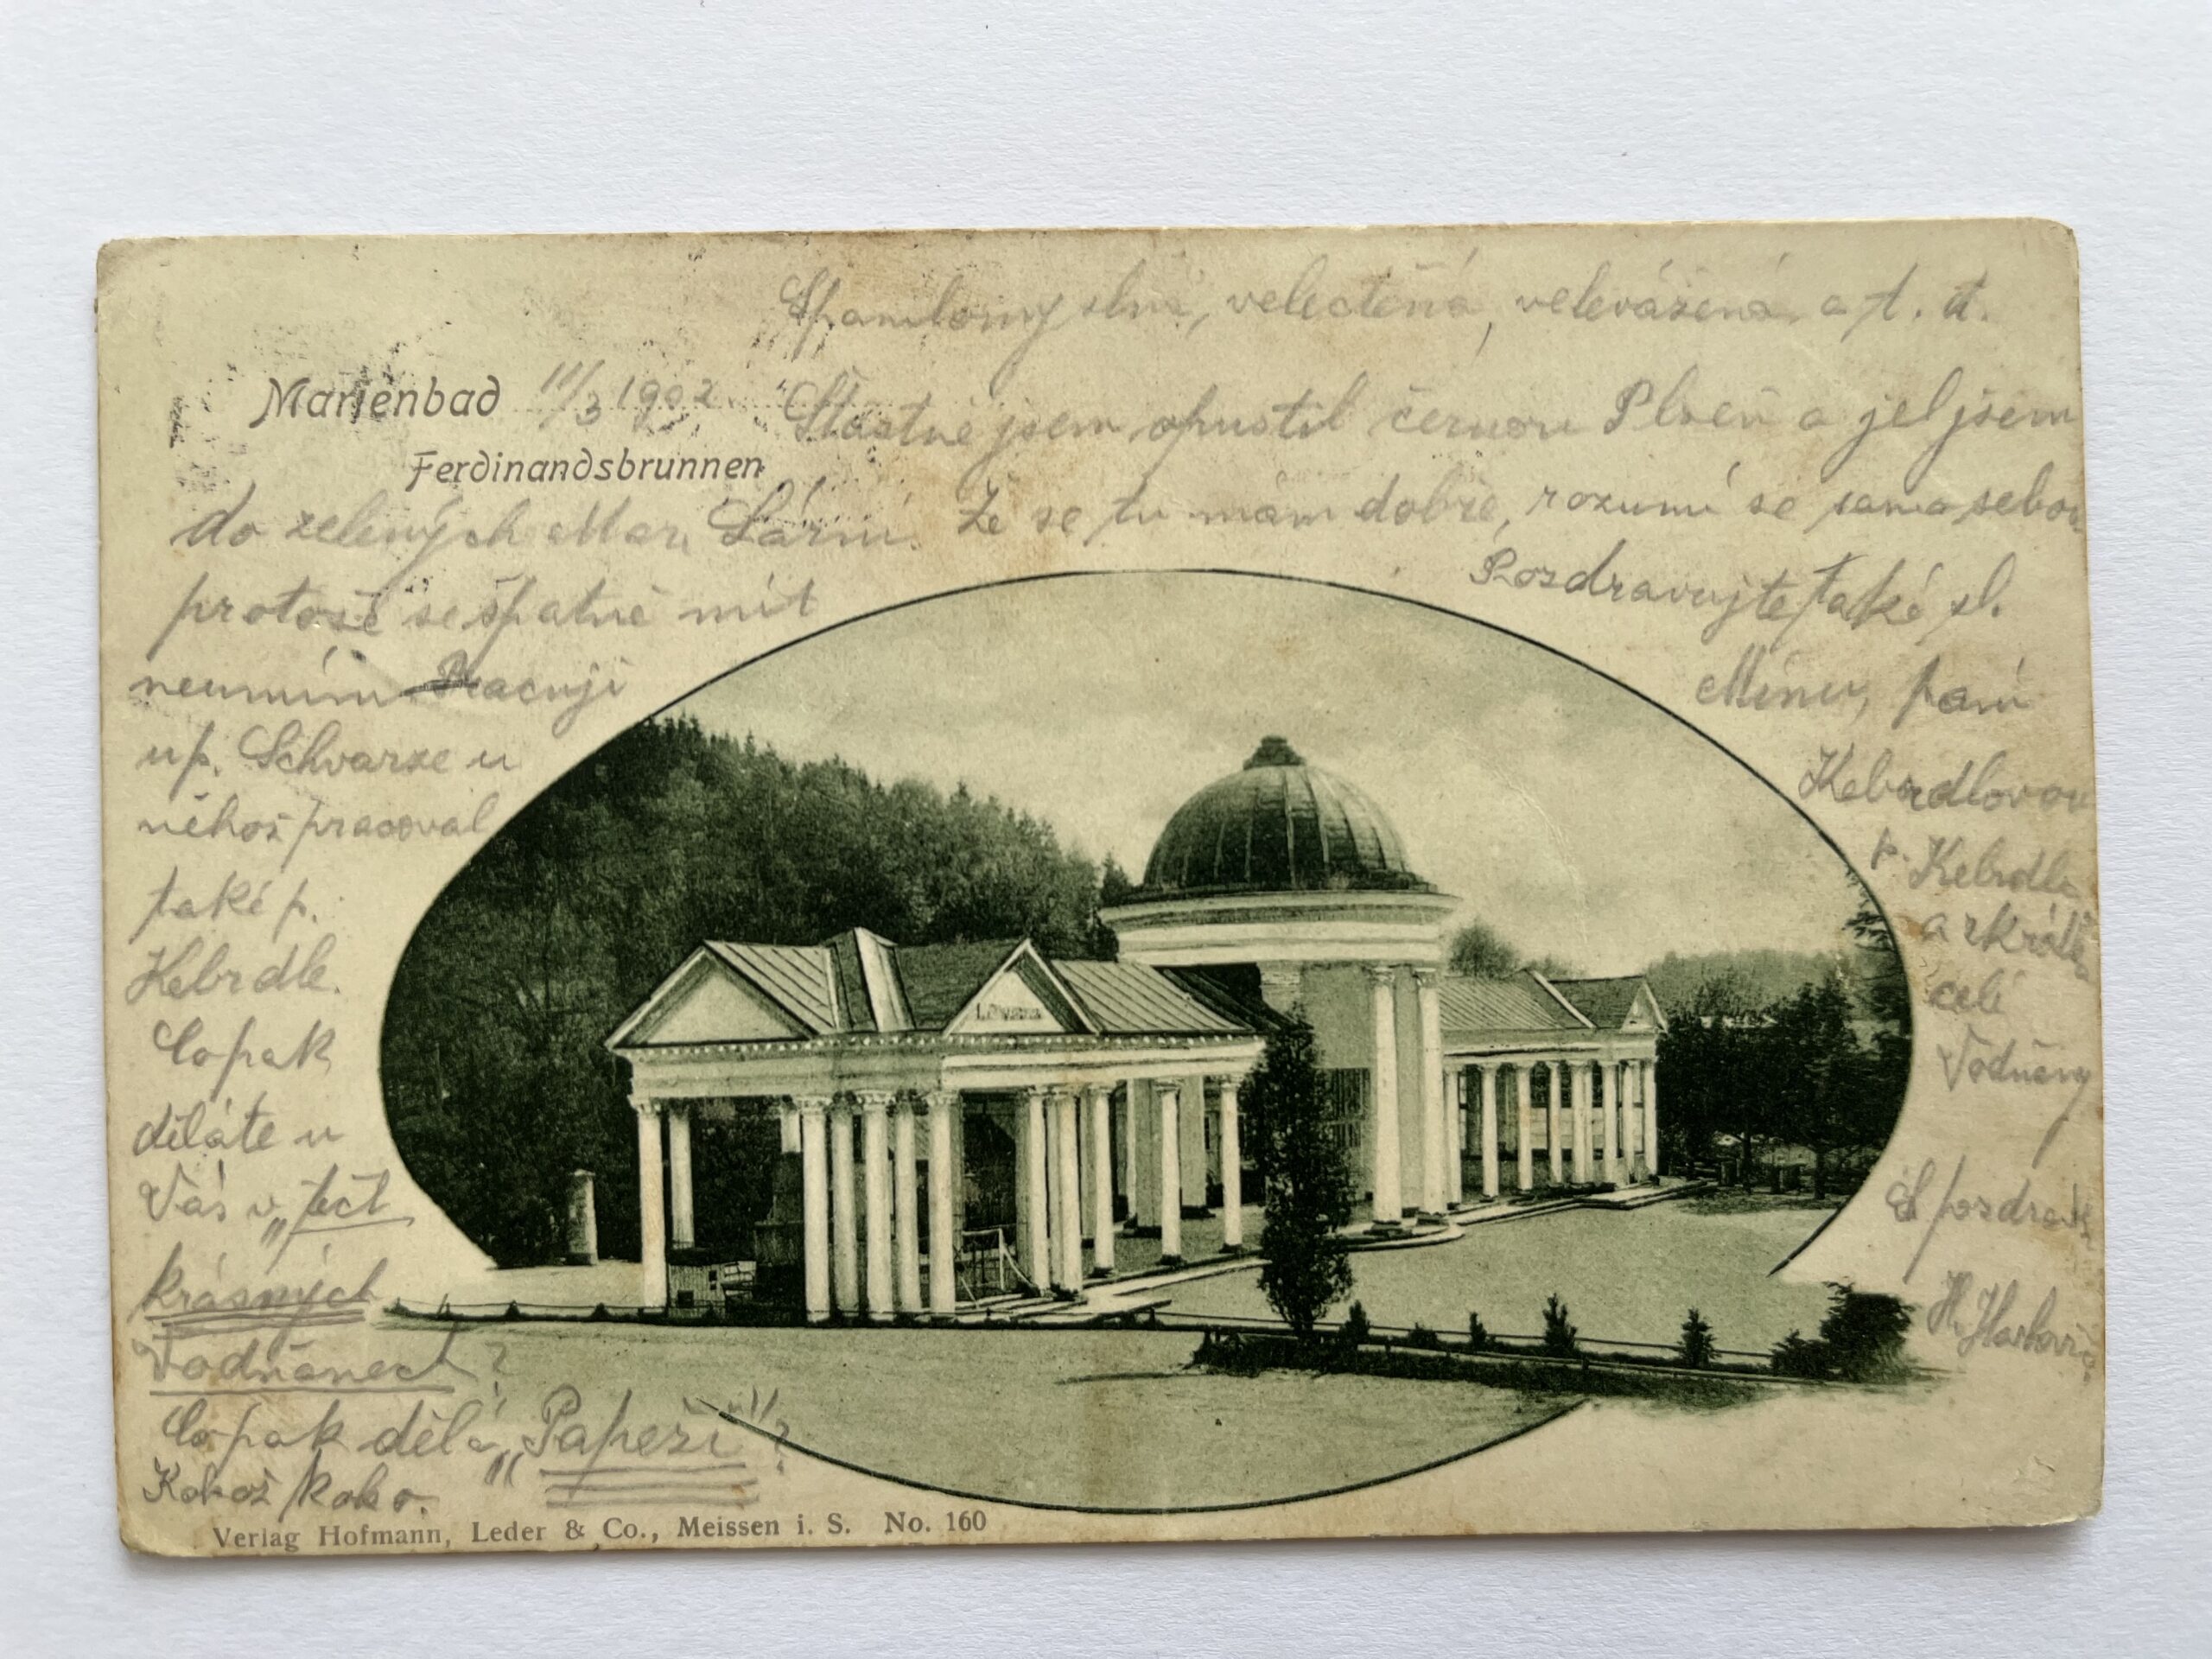 slné, velectěná, velevážená a t. d.
Marienbad 11/3 1902
Šťastně jsem opustil černou Plzeň a jel jsem
Ferdinandsbrunnen
do zelených Mar. Lázní. Že se tu mám dobře, rozumí se samo sebou
protože se špatně mít
neumím Pracuji
u p. Schvarze u
něhož pracoval
také p.
Kebrdle.
Copak
děláte u
Vás v „těch
krásných
Vodňanech ?
Copak dělá „Papeži" ?
Kokož koko.
Pozdravujte také sl.
Minu, paní
Kebrdlovou
p. Kebrdle
a zkrátka
celé
Vodňany
S pozdravem
H.
Verlag Hofmann, Leder & Co., Meissen i. S. No. 160